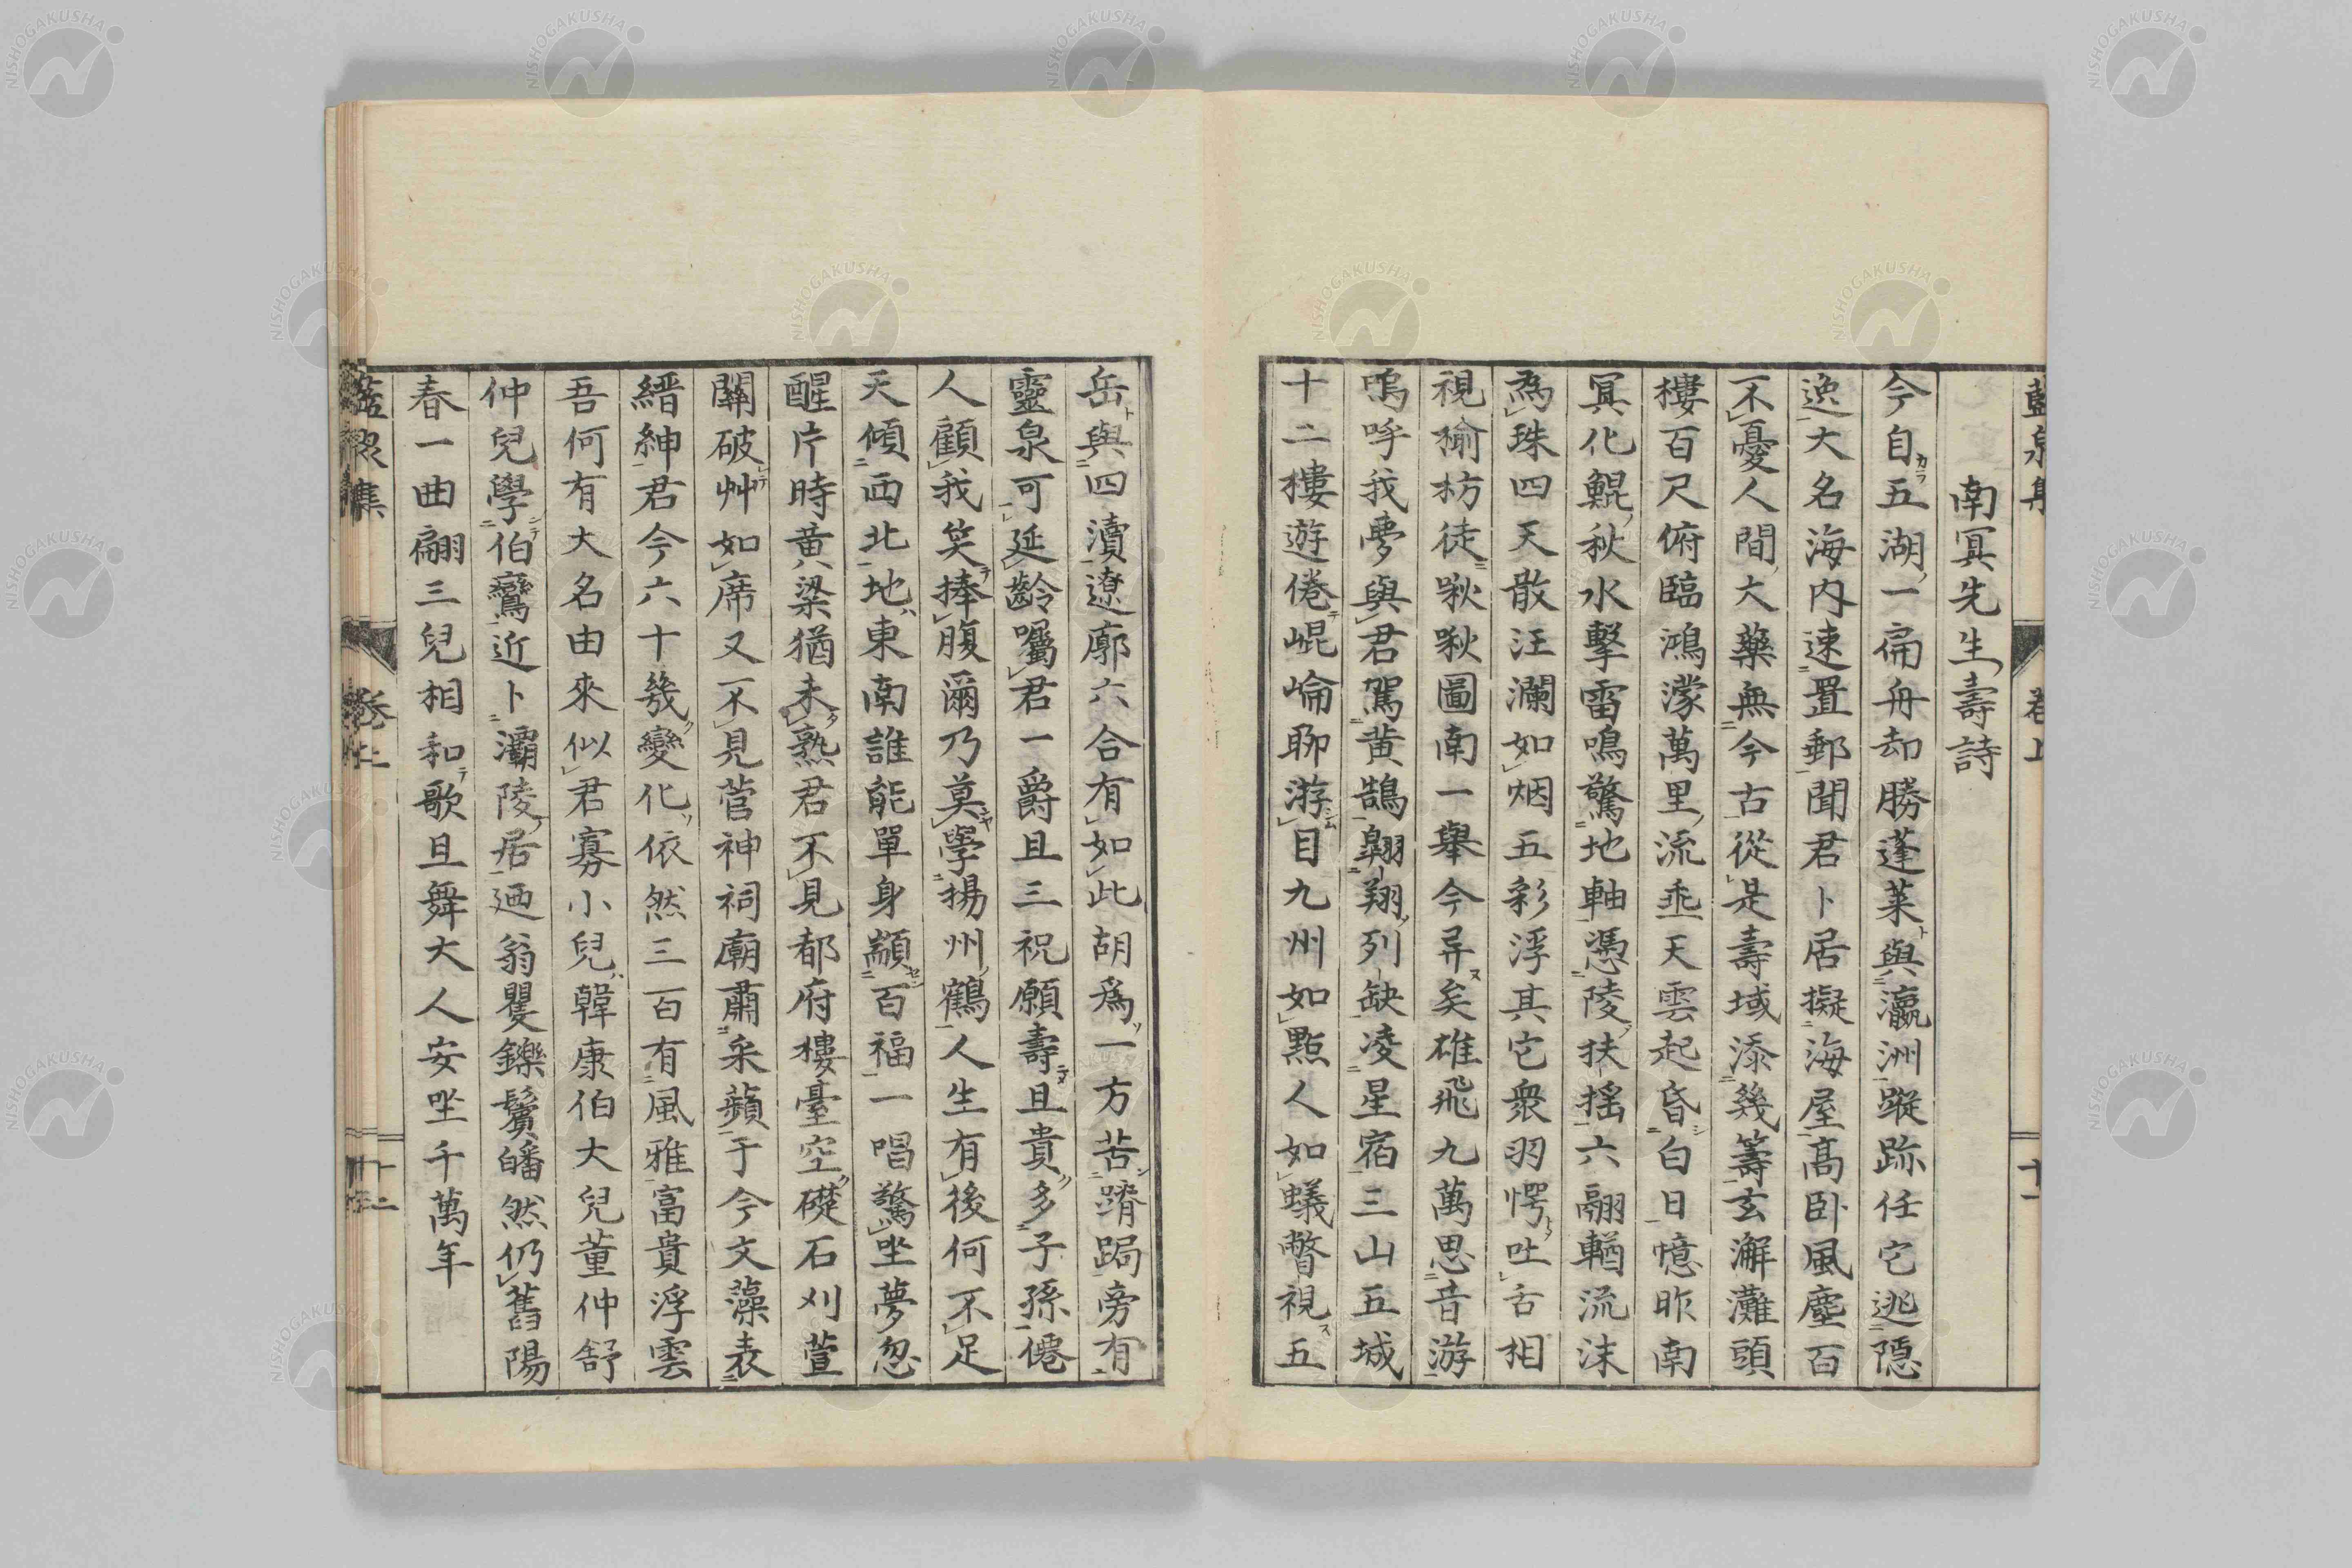 藍泉集
卷上
十一
南冥先生壽詩
今自五湖一扁舟却勝蓬萊與瀛洲蹤跡任它逃隱
逸大名海内速置郵聞君卜居擬海屋高卧風塵百
不憂人間大藥無今古從是壽域添幾籌玄澥灘頭
樓百尺俯臨鴻濛萬里流乖天雲起昏白日憶昨南
冥化鯤秋水擊雷鳴驚地軸憑陵扶搖六翮輶流沫
為珠四天散汪瀾如烟五彩浮其它衆羽愕吐舌相
視楡枋徒啾啾圖南一舉今异矣雄飛九萬思音游
嗚呼我夢與君駕黄鵠翺翔列缺凌星宿三山五城
十二樓遊倦崐崘聊游目九州如點人如蟻瞥視五
岳與四瀆遼廓六合有如此胡爲一方苦蹐跼旁有
靈泉可延齡囑君一爵且三祝願壽且貴多子孫僊
人顧我笑捧腹爾乃莫學揚州鶴人生有後何不足
天傾西北地東南誰能單身顓百福一唱驚坐夢忽
醒片時黄粱猶未熟君不見都府樓臺空礎石刈萱
關破艸如席又不見菅神祠廟肅采蘋于今文藻表
縉紳君今六十幾變化依然三百有風雅富貴浮雲
吾何有大名由來似君寡小兒韓康伯大兒董仲舒
仲兒學伯鸞近卜灞陵居廼翁矍鑠鬢皤然仍舊陽
春一曲翩三兒相和歌且舞大人安坐千萬年
藍泉集
卷上
十二
NISHOGAKUSHA